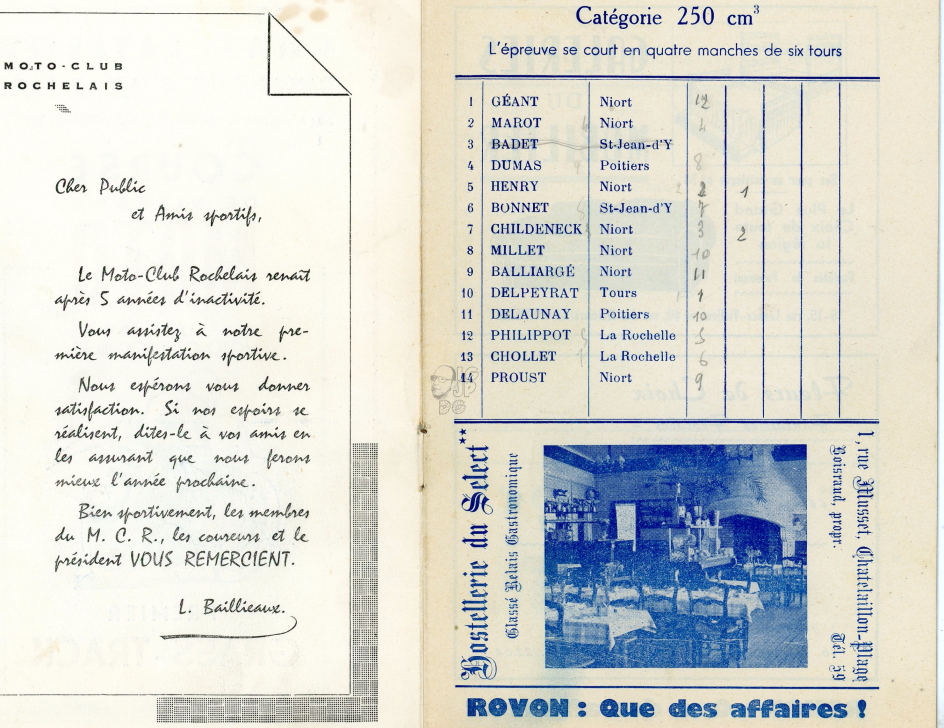 MOTO-CLUB
ROCHELAIS
Cher Public
et Amis sportifs,
Le Moto-Club Rochelais renaît
après 5 années d'inactivité.
Vous assistez à notre pre-
mière manifestation sportive.
Nous espérons vous donner
satisfaction. Si nos espoirs se
réalisent, dites-le à vos amis en
les assurant que nous ferons
mieux l'année prochaine.
Bien sportivement, les membres
du M. C. R., les coureurs et le
président VOUS REMERCIENT.
L. Baillieaux.
Catégorie 250 cm³
L'épreuve se court en quatre manches de six tours
1 GÉANT Niort 12
2 MAROT Niort 4
3 BADET St-Jean-d'Y
4 DUMAS Poitiers 8
5 HENRY Niort 2 2 1
6 BONNET St-Jean-d'Y 7
7 CHILDENECK Niort 3 2
8 MILLET Niort 10
9 BALLIARGÉ Niort 11
10 DELPEYRAT Tours 1 1
11 DELAUNAY Poitiers 10
12 PHILIPPOT La Rochelle 5
13 CHOLLET La Rochelle 6
14 PROUST Niort 9
Hostellerie du Select**
Classé Relais Gastronomique
1, rue Musset, Chatelaillon-Plage
Boisraud, propr. Tél. 59
ROYON : Que des affaires !